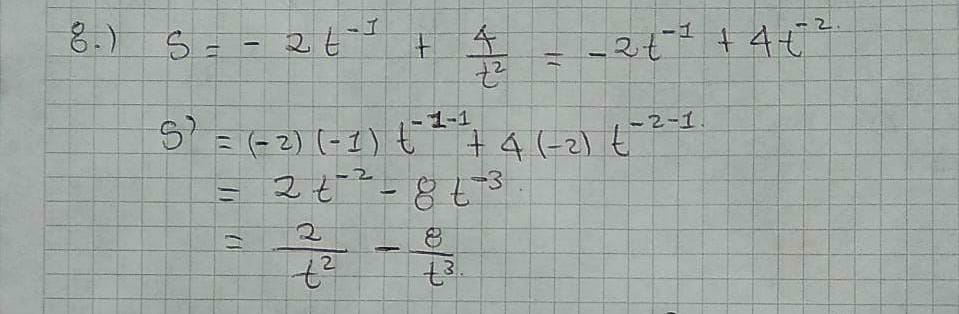 8.) S = - 2t⁻¹ + 4/t² = -2t⁻¹ + 4t⁻².
S' = (-2) (-1) t⁻¹⁻¹ + 4 (-2) t⁻²⁻¹.
= 2t⁻² - 8t⁻³.
= 2/t² - 8/t³.